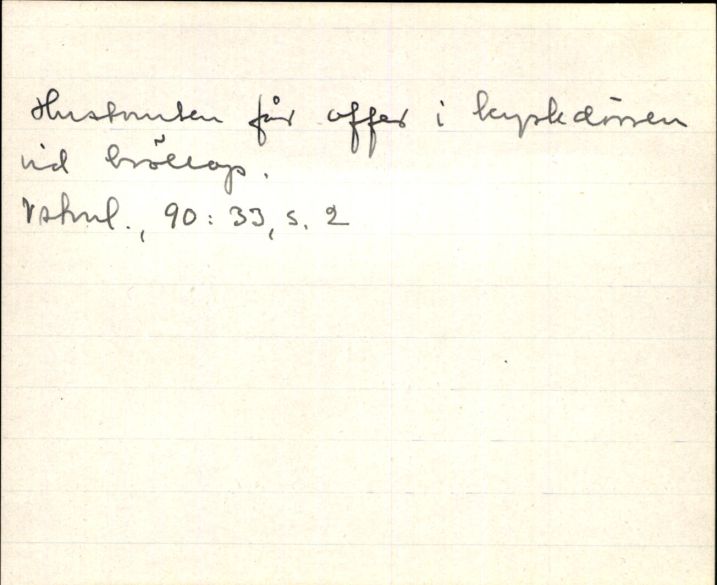 Hustomten får offer i kyrkdörren
vid bröllop.
90:33, s. 2